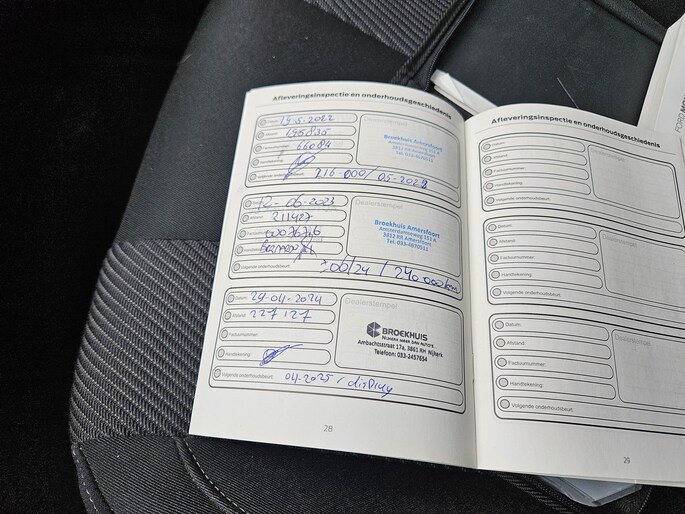 Afleveringsinspectie en onderhoudsgeschiedenis
Datum: 19-5-2022
Afstand: 195835
Factuurnummer: 66084
Handtekening:
Volgende onderhoudsbeurt: 216.000/05-2023
Dealerstempel
Broekhuis Amersfoort
Amsterdamseweg
Amersfoort
12-06-2023
Afstand: 211427
W076746
Dealerstempel
Broekhuis Amersfoort
Amsterdamseweg 151 A
3812 RR Amersfoort
Tel. 033-4670511
Volgende onderhoudsbeurt: /24 / 240.000km
Datum: 29-04-2024
Afstand: 227127
Factuurnummer:
Handtekening:
Dealerstempel
BROEKHUIS
Ambachtsstraat 17a, 3861 RH Nijkerk
Telefoon: 033-2457654
Volgende onderhoudsbeurt: 04-2025 / display
28
Afleveringsinspectie en onderhoudsgeschiedenis
Datum:
Afstand:
Factuurnummer:
Handtekening:
Volgende onderhoudsbeurt:
Dealerstempel
Datum:
Afstand:
Factuurnummer:
Handtekening:
Volgende onderhoudsbeurt:
Datum:
Afstand:
Factuurnummer:
Handtekening:
Volgende onderhoudsbeurt:
29
FORD MON